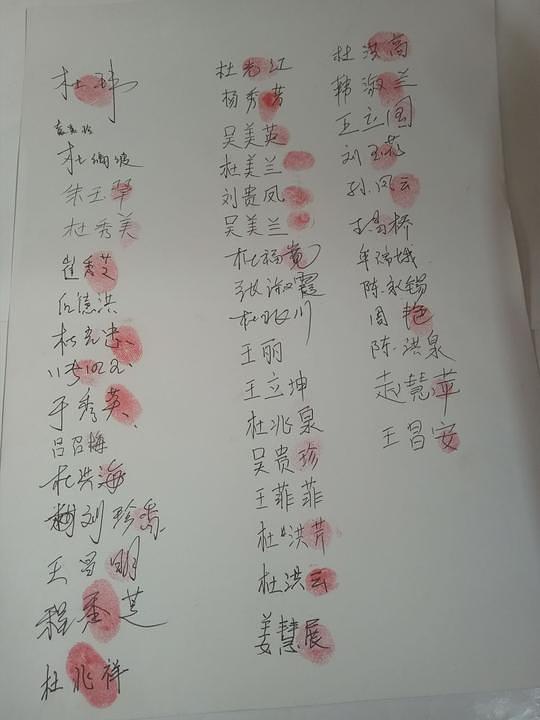 杜玮
朱玉琴
杜秀美
崔秀芝
丘德洪
杜克忠
于秀英
吕召梅
杜洪海
刘珍香
王昌明
程秀芝
杜兆祥
杜光江
杨秀芳
吴美英
杜美兰
刘贵凤
吴美兰
杜福贵
张淑霞
王丽
王立坤
杜兆泉
吴贵珍
王菲菲
杜洪芹
杜洪云
姜慧展
杜洪高
韩淑兰
王立国
刘玉花
孙凤云
牟瑞娥
陈永锡
周艳
陈洪泉
赵慧萍
王昌安